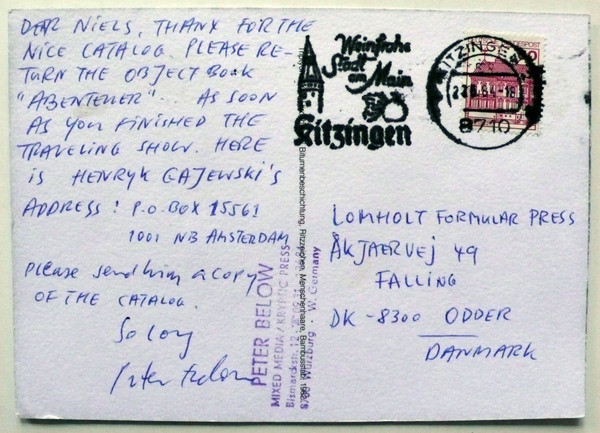 DEAR NIELS, THANX FOR THE
NICE CATALOG. PLEASE RE-
TURN THE OBJECT BOOK
"ABENTEUER".. AS SOON
AS YOU FINISHED THE
TRAVELING SHOW. HERE
IS HENRYK GAJEWSKI'S
ADDRESS: P.O. BOX 15561
1001 NB AMSTERDAM
Please send him a copy
OF THE CATALOG.
So long
Peter Below
Weinfrohe
Stadt
am Main
Kitzingen
KITZINGEN
8710
Bitumenbeschichtung, Ritzzeichen, Menschenhaare, Bambusstab, 1982
PETER BELOW
MIXED MEDIA/KRYPTIC PRESS
Bismarckstr. 12
Würzburg · W. Germany
LOMHOLT FORMULAR PRESS
ÅKJAERVEJ 49
FALLING
DK-8300 ODDER
DANMARK